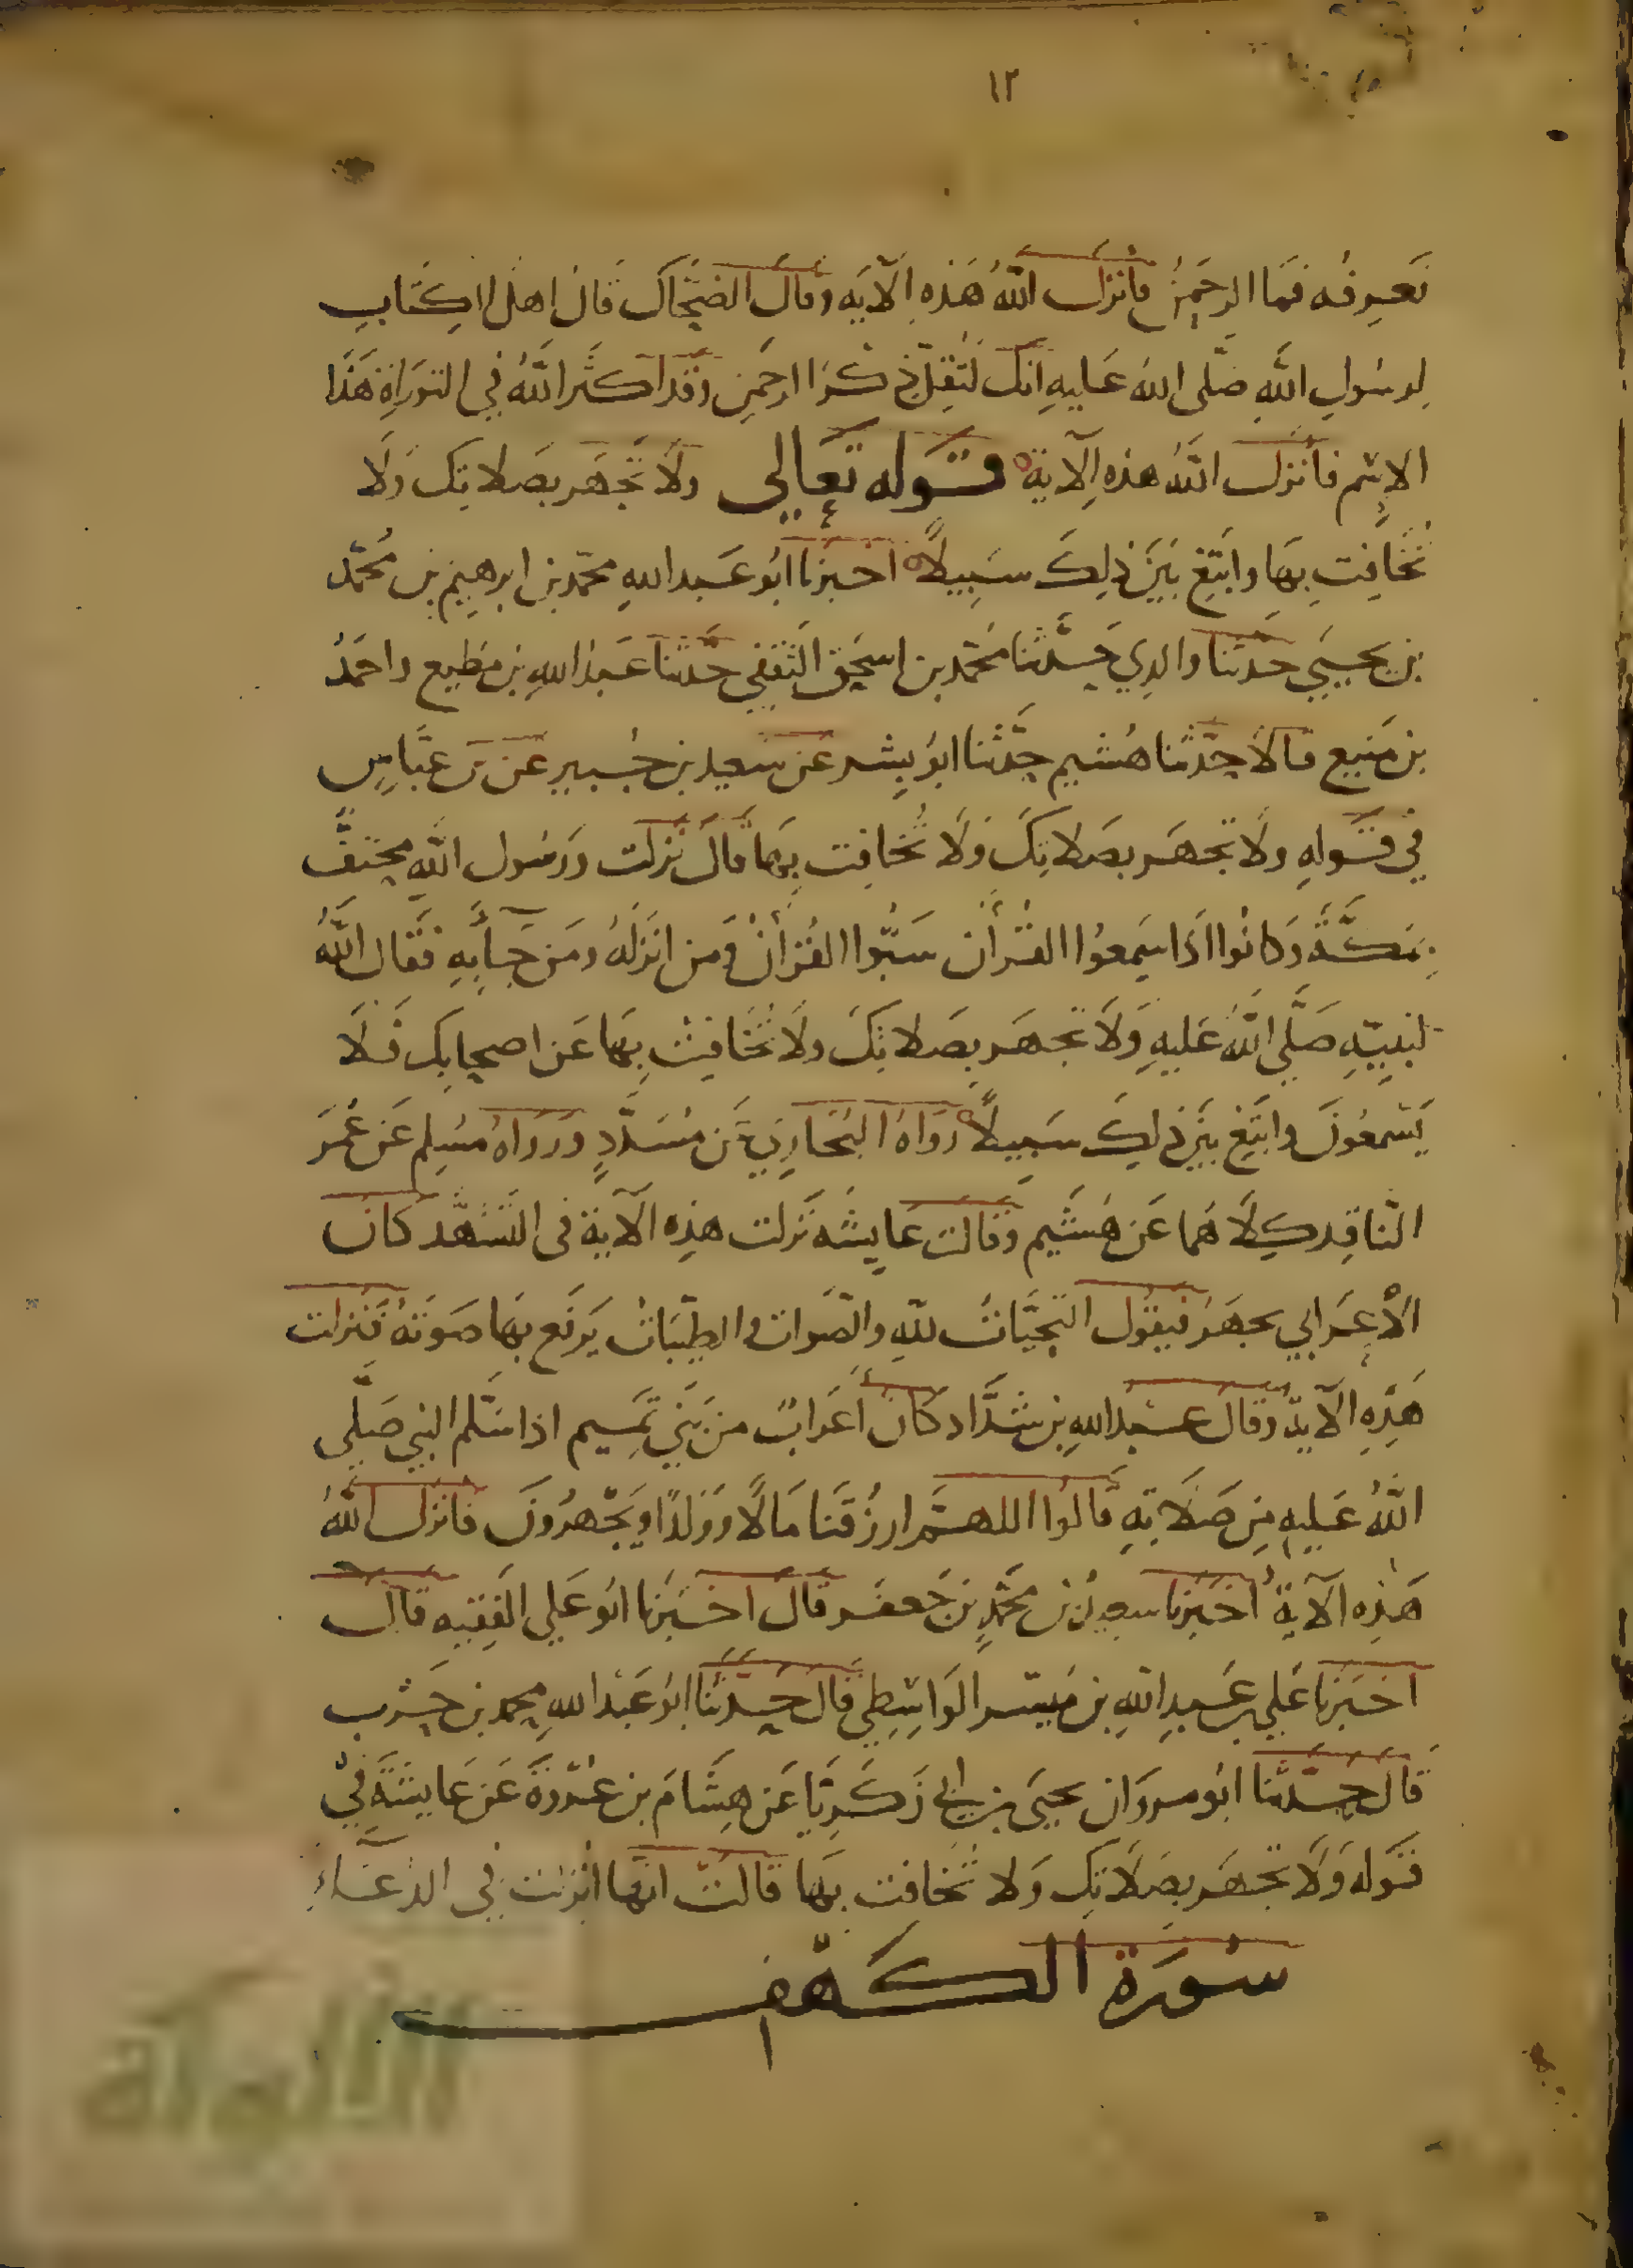 ١٢
نَعرِفُه فمَا الرحمنُ فأنزل اللهُ هَذهِ الآيَه وقال الضحاك قال اهل الكتاب
لرسُولِ اللهِ صَلَّى اللهُ عَليهِ انك لتُقِلّ ذِكرَ الرحمن وقد اكثَر اللهُ في التورَاةِ هَذَا
الاِسْم فأنزل اللهُ هذهِ الآية قَوله تَعَالى ولَا تَجهَر بصَلاتِك وَلَا
تُخَافِت بِهَا وابتَغ بَينَ ذلِكَ سَبِيلًا اخبرنا ابُو عَبد اللهِ محمد بن ابرهيم بن مُحمّد
بن يحيي حدثنا والدِي حَدّثنا محمّد بن اسحق الثَقفي حدّثنا عَبدُ اللهِ بن مطيع واحمَدُ
بن مَنيع قالَا حَدّثنا هُشيم حَدّثنا ابُو بِشر عَن سعيد بن جُبير عَن بن عبّاسٍ
في قَولهِ ولَا تجهَر بصَلاتِكَ وَلَا تُخافِت بِهَا قالَ نَزلَت ورسُول اللهِ مختفٍ
بمَكَّةَ وَكانُوا اذَا سَمِعُوا القُرأن سَبُّوا القُرأن ومَن انزَلهُ ومَن جَاءَ بِهِ فَقَال اللهُ
لنبيّهِ صَلَّي اللهُ عَليهِ وَلَا تجهَر بِصَلاتِكَ ولَا تُخَافِتْ بِهَا عَن اصحابِك فَلَا
يَسْمعُونَ وابتَغ بَينَ ذلِكَ سَبيلًا رَوَاهُ البُخَاريّ عَن مُسَدّدٍ وَرَوَاهُ مسُلِم عَن عُمَرَ
النّاقِد كِلَاهُما عَن هُشَيم وَقالت عايِشَه نَزلت هذِه الآية فى التشهّد كان
الأعرَابي يجهَر فيَقُول التّحيَّاتُ للهِ والصّلوات والطيّبَاتُ يَرفَع بِهَا صَوتَهُ فَنزلت
هَذِهِ الآية وقالَ عَبدُ اللهِ بن شدَّاد كانَ أعرَابٌ من بَني تَمِيم اذا سَلّم النبي صَلَّي
اللهُ عَليهِ مِن صَلَاتِهِ قَالُوا اللهم ارزُقنَا مَالًا وَوَلدًا ويَجْهرُونَ فانزَل اللهُ
هَذِه الآية اخبَرنا سعيدُ بن محمّدٍ بن جَعفَر قال اخبَرنا ابُو عَلي الفَقيه قال
اخبَرنا عَلي بن عَبدِ اللهِ بن مُبشر الوَاسِطي قال حَدّثنا ابُو عَبد اللهِ محمد بن حَرب
قَال حَدّثنا ابُو مروَان يحيَى بن ابي زَكَرِيَّا عَن هِشَام بن عُروَةَ عَن عَايشَةَ في
قَوله وَلَا تجهَر بصَلَاتِك وَلا تُخافت بِهَا قالتْ انّها انزلت في الدُّعَاءِ
سُورَة الكَهف
الألوكة